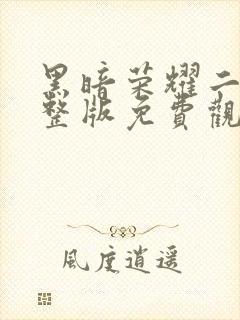 黑暗荣耀二
整版免費觀
風度逍遥